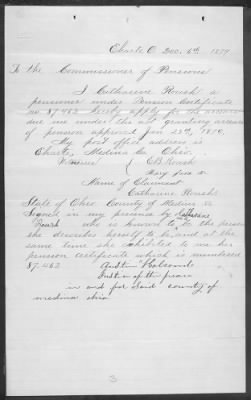 Chatham O. Dec. 6th 1879
To the Commissioner of Pensions
I Catharine Roush a
pensioner under Pension Certificate
no 87.462 hereby apply for the arrears
due me under the act granting arrears
of pension approved Jan 25th, 1879.
My post office address is
Chatham, Medina Co. Ohio.
Witness C B Roush
Mary
Name of Claimant
Catharine Roush
State of Ohio County of Medina ss
Signed in my presence by Catharine
Roush who is known to be the person
she describes herself to be, and at the
same time she exhibited to me her
pension certificate which is numbered
87.462
Justice of the peace
in and for said county of
medina ohio
3